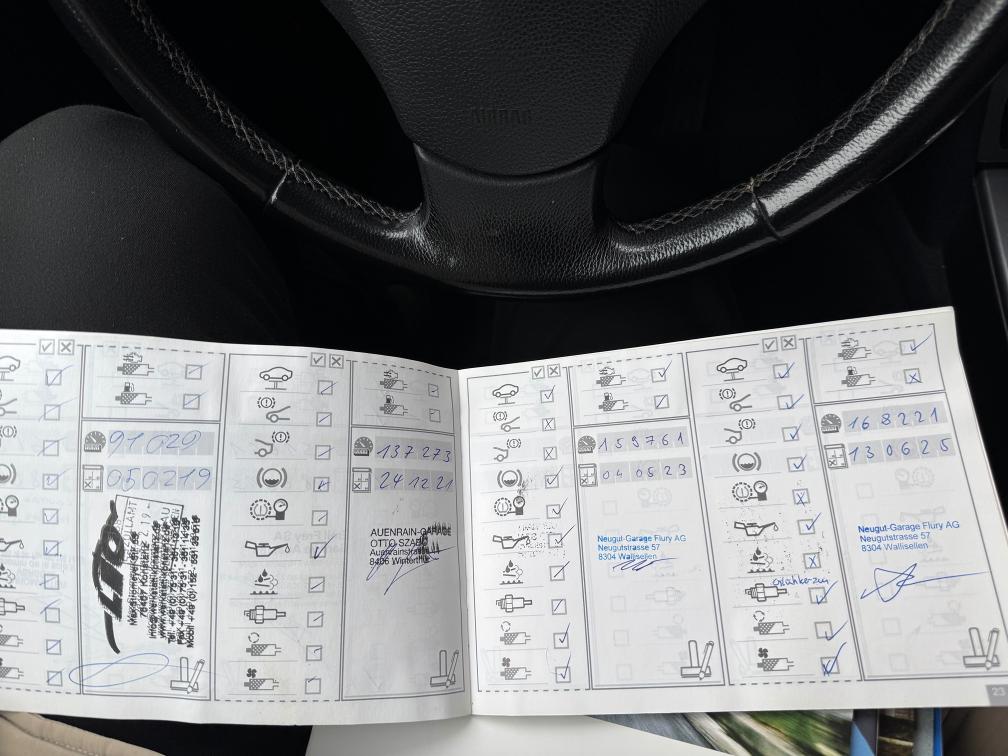 AIRBAG
91 029
050219
LTO
137 273
24 12 21
AUENRAIN-GARAGE
OTTO SZABO
Auenrainstrasse
8406 Winterthur
159761
04 05 23
Neugut-Garage Flury AG
Neugutstrasse 57
8304 Wallisellen
Glühkerzen
168221
130625
Neugut-Garage Flury AG
Neugutstrasse 57
8304 Wallisellen
23